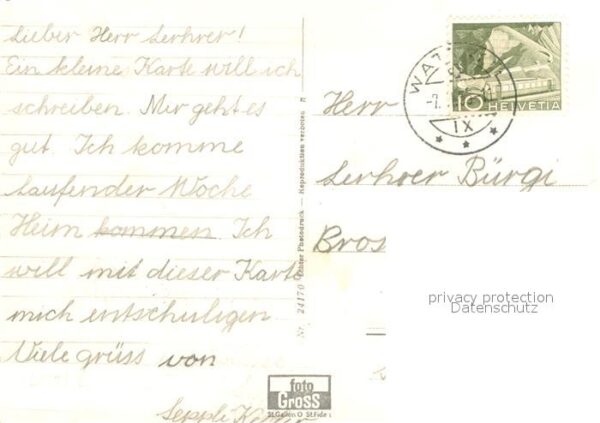 Lieber Herr Lerhrer!
Ein kleine Karte will ich
schreiben. Mir geht es
gut. Ich komme
laufender Woche
Heim kommen Ich
will mit dieser Karte
mich entschuligen
Viele grüss von
Seppli
Nr. 24170 Photodruck — Reproduktion verboten
foto
Gross
St. Gallen
WAT
IX
10 HELVETIA
Herr
Lerhrer Bürgi
Bros
privacy protection
Datenschutz